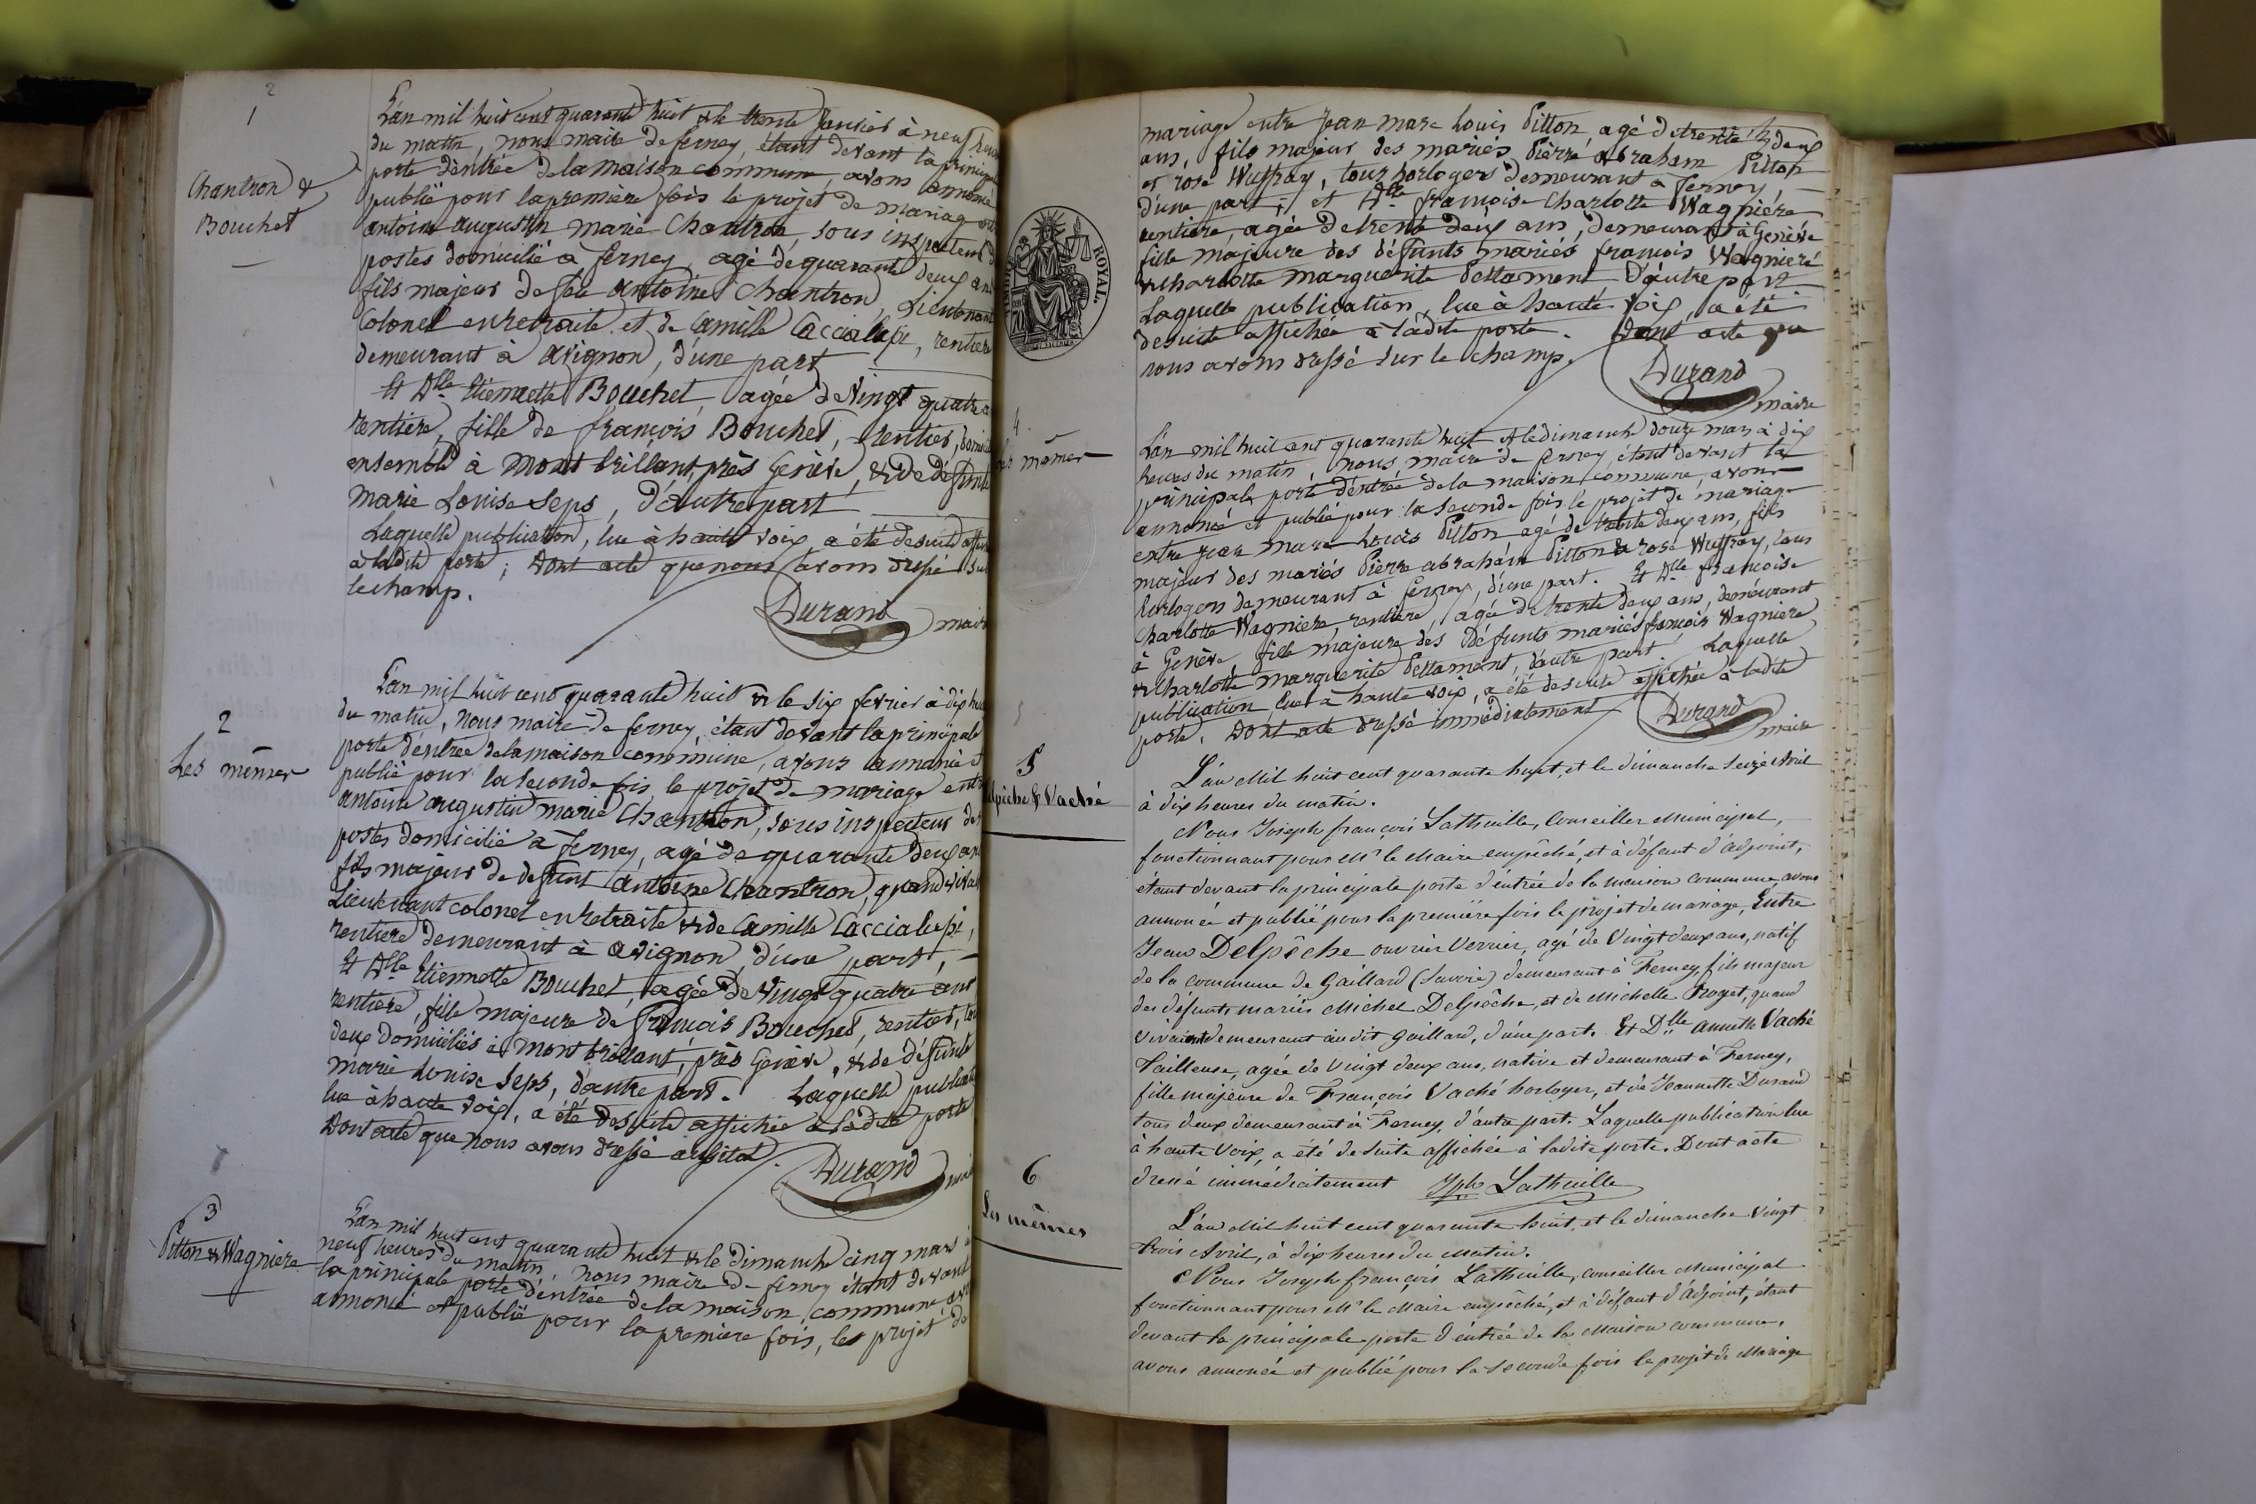 2
1
Chantron &
Bouchet
L'an mil huit cent quarante huit & le trente Janvier à neuf heures
du matin, nous maire de ferney, étant devant la principale
porte d'entrée de la maison commune, avons annoncé
publié pour la première fois le projet de mariage entre
antoine augustin marie Chantron, sous inspecteur des
postes domicilié à ferney, agé de quarante deux ans
fils majeur de feu antoine Chantron, Lieutenant
Colonel en retraite et de Camille Caccialupi, rentière
demeurant à avignon, d'une part
Et Dlle Etiennette Bouchet, agée de Vingt quatre ans
rentière, fille de françois Bouchet, rentier, domiciliés
ensemble à Montbrillant, près Genève, & de défunte
marie Louise Seps, d'autre part
Laquelle publication, lue à haute voix a été de suite affichée
à ladite porte; Dont acte que nous avons dressé sur
le champ.
Durand maire
2
Les mêmes
L'an mil huit cent quarante huit & le six fevrier à dix heures
du matin, nous maire de ferney, étant devant la principale
porte d'entrée de la maison commune, avons annoncé et
publié pour la seconde fois le projet de mariage entre
antoine augustin marie Chantron, sous inspecteur des
postes domicilié à ferney, agé de quarante deux ans
fils majeur de defunt antoine Chantron, quand vivait
Lieutenant colonel en retraite & de Camille Caccialupi,
rentière demeurant à avignon, d'une part,
Et Dlle Etiennette Bouchet, agée de Vingt quatre ans
rentière, fille majeure de François Bouchet, rentier, tous
deux domiciliés à Montbrillant, près Genève, & de défunte
marie Louise Seps, d'autre part. Laquelle publication
lue à haute voix, a été de suite affichée à ladite porte
Dont acte que nous avons dressé aussitot.
Durand maire
3
Pitton & Wagnière
L'an mil huit cent quarante huit & le dimanche cinq mars à
neuf heures du matin, nous maire de ferney étant devant
la principale porte d'entrée de la maison commune avons
annoncé et publié pour la première fois, le projet de
mariage entre Jean marc Louis Pitton, agé de trente deux
ans, fils majeur des mariés Pierre abraham Pitton
et rose Wuffray, tous horlogers demeurant à Ferney,
d'une part; et Dlle françoise Charlotte Wagnière
rentière, agée de trente deux ans, demeurant à Genève
fille majeure des défunts mariés françois Wagnière
& Charlotte marguerite Pettament d'autre part
Laquelle publication, lue à haute voix, a été
de suite affichée à ladite porte. dont acte que
nous avons dressé sur le champ.
Durand
maire
TIMBRE ROYAL.
4
Les mêmes
L'an mil huit cent quarante huit & le dimanche douze mars à dix
heures du matin, nous, maire de ferney, étant devant la
principale porte d'entrée de la maison commune, avons
annoncé et publié pour la seconde fois le projet de mariage
entre Jean marc Louis Pitton agé de trente deux ans, fils
majeur des mariés Pierre abraham Pitton & rose Wuffray, tous
horlogers demeurant à ferney, d'une part. Et Dlle françoise
Charlotte Wagnière rentière, agée de trente deux ans, demeurant
à Genève fille majeure des défunts mariés françois Wagnière
& Charlotte marguerite Pettament, d'autre part Laquelle
publication lue à haute voix, a été de suite affichée à ladite
porte. Dont acte dressé immédiatement
Durand
maire
5
Delpêche & Vaché
L'an Mil huit cent quarante huit, et le dimanche Seize Avril
à dix heures du matin.
Nous Joseph françois Lathuille, Conseiller Municipal,
fonctionnant pour Mr le Maire empêché, et à défaut d'adjoint,
étant devant la principale porte d'entrée de la maison commune avons
annoncé et publié pour la première fois le projet de mariage, Entre
Jean Delpêche ouvrier Verrier, agé de Vingt deux ans, natif
de la commune de Gaillard (Savoie) demeurant à Ferney, fils majeur
des défunts mariés Michel Delpêche, et de Michelle Roget, quand
vivaient demeurant au dit Gaillard, d'une part. Et Dlle annette Vaché
Tailleuse, agée de Vingt deux ans, native et demeurant à Ferney,
fille majeure de François Vaché horloger, et de Jeannette Durand
tous deux demeurant à Ferney, d'autre part. Laquelle publication lue
à haute voix, a été de suite affichée à ladite porte. Dont acte
dressé immédiatement Jph Lathuille
6
Les mêmes
L'an Mil huit cent quarante huit, et le dimanche Vingt
trois Avril, à dix heures du Matin.
Nous Joseph françois Lathuille, conseiller Municipal
fonctionnant pour Mr le Maire empêché, et à défaut d'Adjoint, étant
devant la principale porte d'entrée de la Maison commune,
avons annoncé et publié pour la seconde fois le projet de Mariage